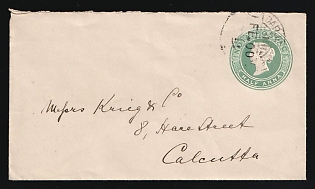 HALF ANNA
Messrs Krieg & Co
8, Hare Street
Calcutta